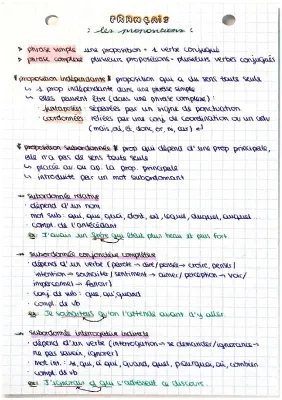 FRANÇAIS
: les propositions :
phrase simple une proposition = 1 verbe conjugué
phrase complexe plusieurs propositions = plusieurs verbes conjugués
proposition indépendante proposition qui a du sens toute seule
↳ 1 prop indépendante dans une phrase simple
↳ elles peuvent être (dans une phrase complexe) :
juxtaposées : séparées par un signe de ponctuation
coordonnées : reliées par une conj de coordination ou un adv
(mais, où, et, donc, or, ni, car)
proposition subordonnées prop qui dépend d'une prop principale,
elle n'a pas de sens toute seule
↳ placée av ou ap. la prop. principale
↳ introduite par un mot subordonnant
→ subordonnée relative
• dépend d'un nom
mot sub : qui, que, quoi, dont, où, lequel, duquel, auquel
• compl. de l'antécédant
ex: J'avais un frère qui était plus beau et plus fort.
→ subordonnée conjonctive complétive
• dépend d'un verbe (parole → dire / pensée → croire, penser /
intention → souhaiter / sentiment → aimer / perception → voir /
impersonnel → falloir)
• conj de sub : que, qu', quand
• compl. de vb
ex: Je souhaitais qu'on l'attende avant d'y aller.
→ subordonnée interrogative indirecte
• dépend d'un verbe (interrogation → se demander / ignorance →
ne pas savoir, ignorer)
• mot int. : si, qui, à qui, quand, quel, pourquoi, où, combien
• compl. de vb
ex: J'ignorais à qui s'adressait ce discours.